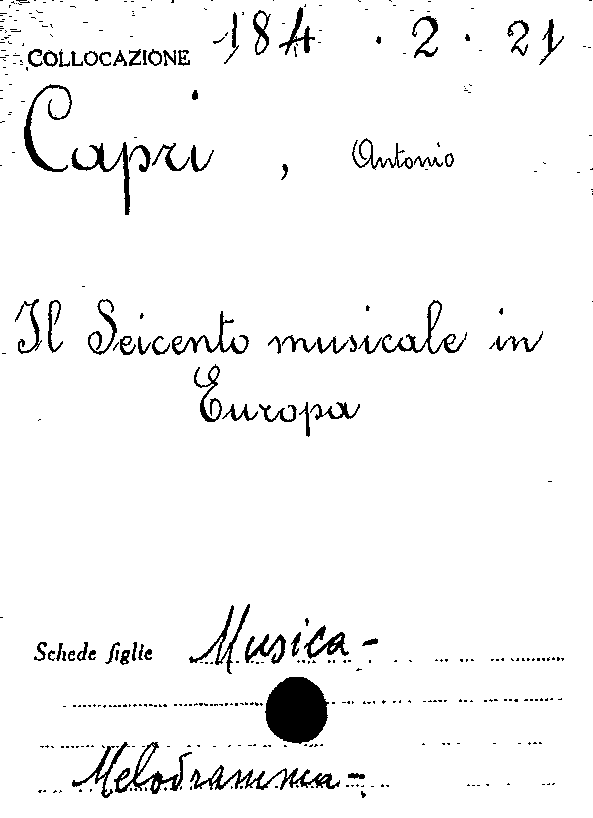 COLLOCAZIONE 184 · 2 · 21
Capri, Antonio
Il Seicento musicale in
Europa
Schede figlie Musica -
Melodramma -